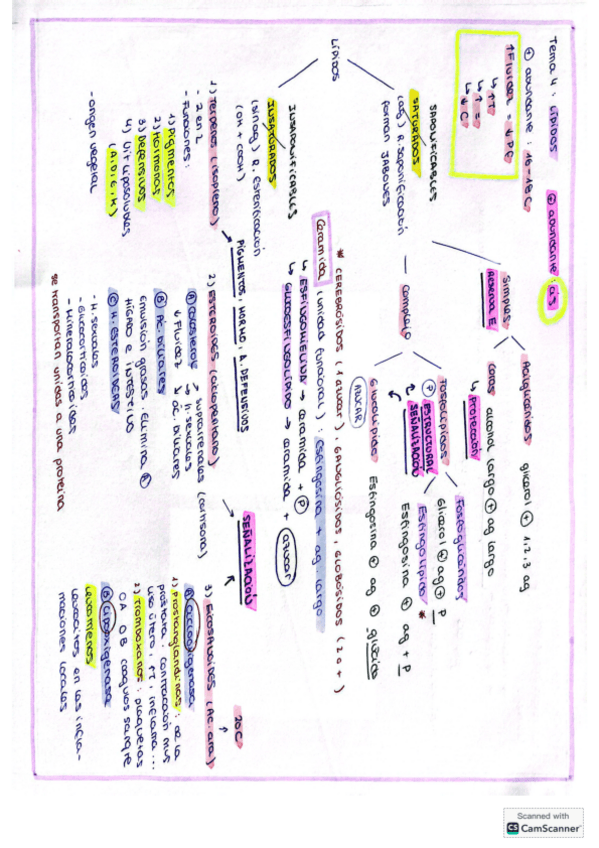 Tema 4: LÍPIDOS
⊕ abundante: 16-18C
⊕ abundante: cis
↑Fluidez = ↓PC
↳ ↑T
↳ ↑=
↳ ↓C
LÍPIDOS
SAPONIFICABLES
SATURADOS
(ag) R. saponificación
forman JABONES
Simples
RESERVA E
Acilglicéridos glicerol ⊕ 1,2,3 ag
Ceras alcohol largo ⊕ ag largo
↳ Protección
Complejo
Fosfolípidos
(P) ESTRUCTURAL
SEÑALIZACIÓN
Fosfoglicéridos
Glicerol ⊕ ag + P
Esfingolípido *
Esfingosina ⊕ ag + P
Glucolípido Esfingosina ⊕ ag ⊕ glúcido
AZUCAR
* CEREBRÓSIDOS (1 azucar), GANGLIÓSIDOS, GLOBÓSIDOS (2 o +)
Ceramida (unidad funcional): esfingosina + ag. largo
↳ ESFINGOMIELINA → ceramida + (P)
↳ GLUCOESFINGOLÍPIDO → ceramida + azucar
INSAPONIFICABLES
INSATURADOS
(sin ag) R. esterificación
(OH + COOH)
1) Terpenos (isopreno)
- 2 en 2
- Funciones:
1) Pigmentos
2) Hormonas
3) Defensivos
4) Vit liposolubles
(A,D,E,K)
- origen vegetal
PIGMENTOS, HORMO, A. DEFENSIVOS
2) ESTEROIDES (ciclopentano)
Ⓐ Colesterol → suprarrenales (cortisona)
→ h. sexuales
↓ Fluidez ↓ ac. biliares
Ⓑ Ac. biliares
emulsión grasas. elimina
HÍGADO E INTESTINO
Ⓒ H. ESTEROIDEAS
- H. sexuales
- Glucocorticoides
- Mineralocorticoides
se transportan unidas a una proteína
SEÑALIZACIÓN
20C
3) Eicosanoides (Ac. ara)
Ⓐ Ciclooxigenasa
1) Prostanglandinas: de la
prostata. contracción mus
liso útero, ↑T, inflama...
2) Tromboxanos: plaquetas
coagulos sangre
Ⓑ Lipooxigenasa
Leucotrienos
Leucocitos en las infla-
maciones locales
Scanned with
CS CamScanner